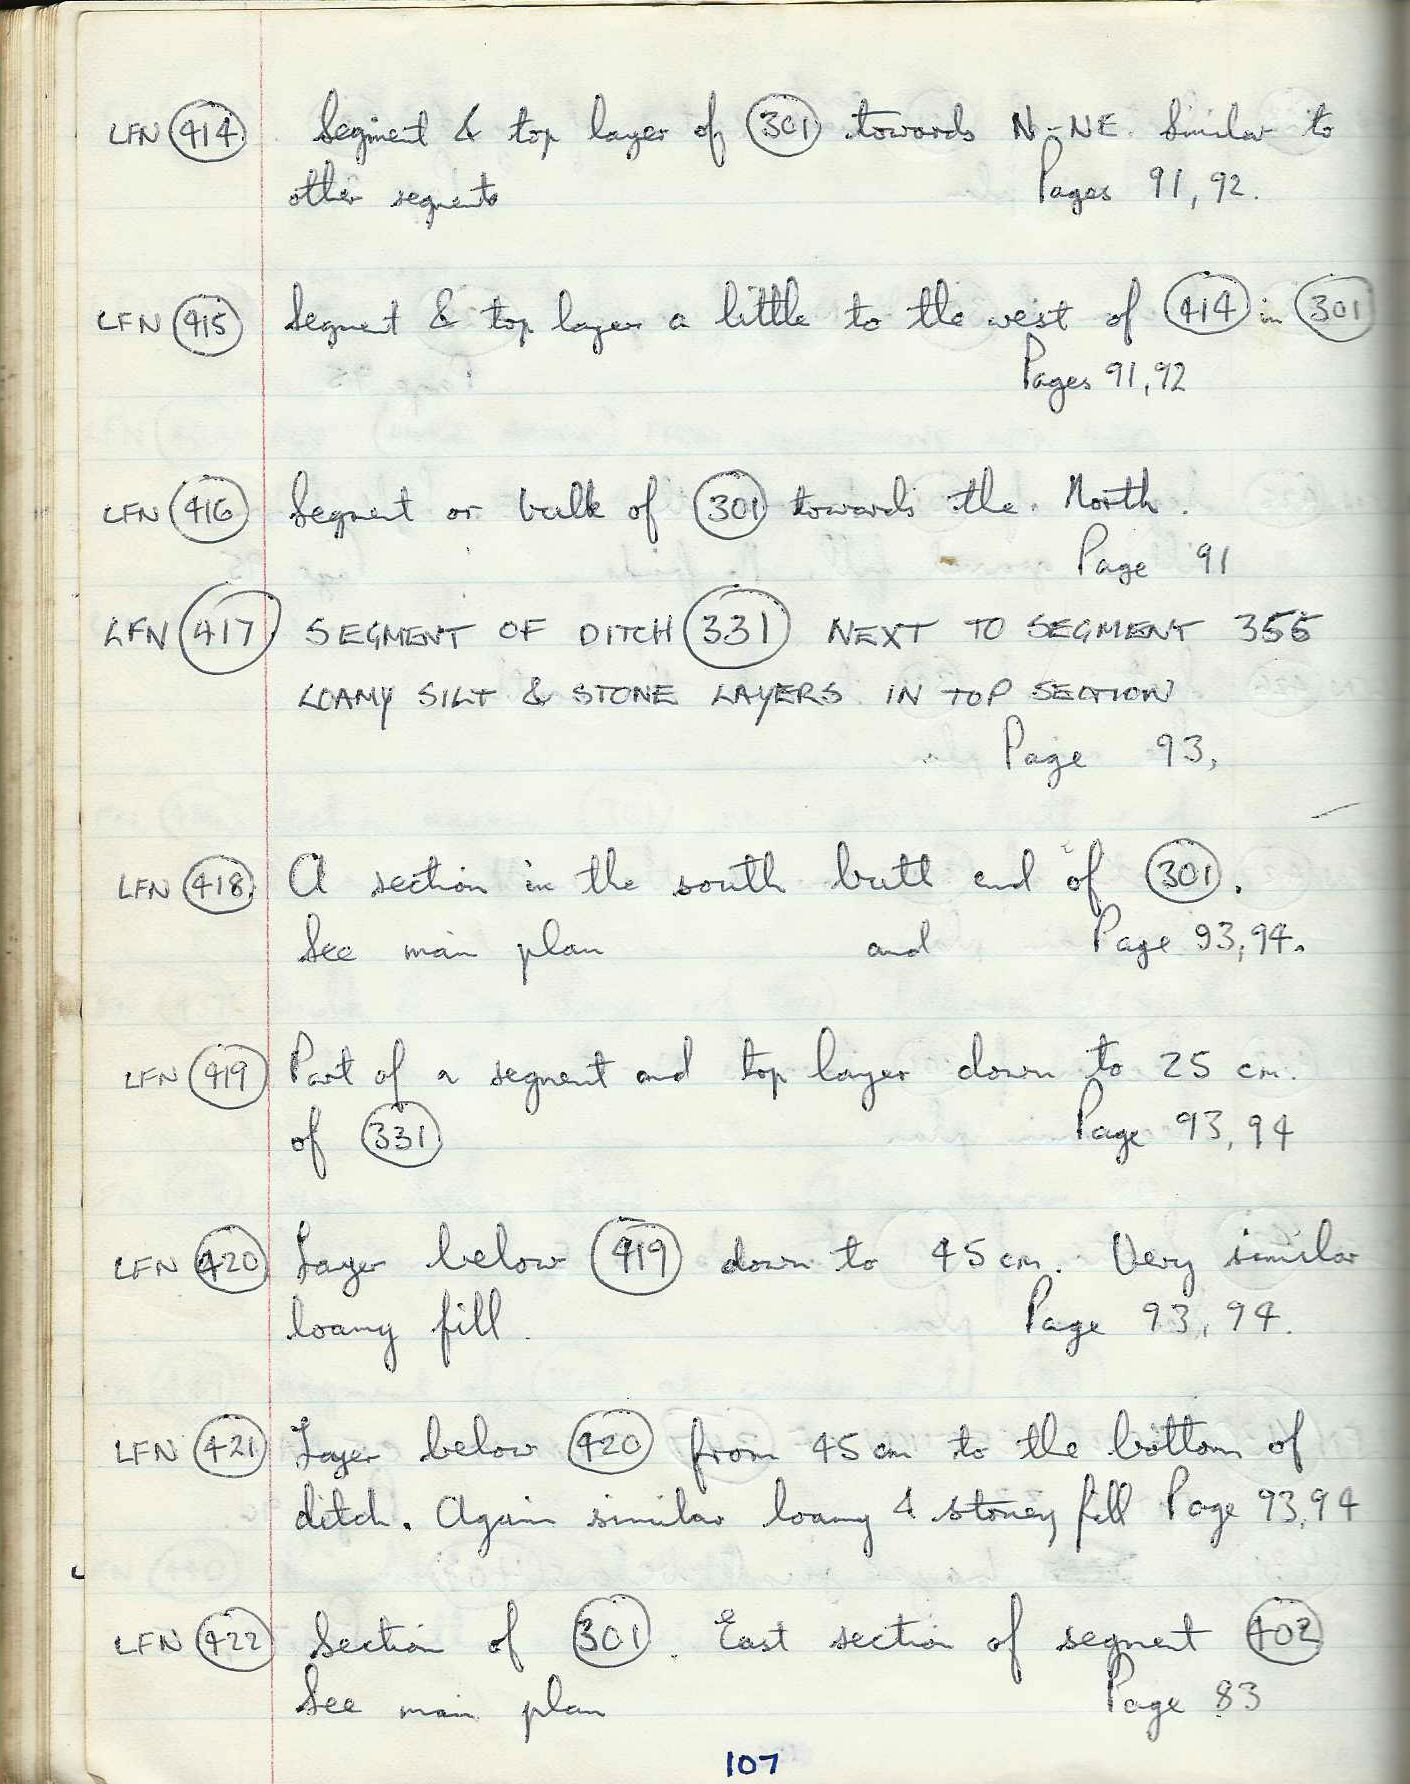 LFN 414 Segment & top layer of 301 towards N-NE. Similar to
other segments Pages 91, 92.
LFN 415 Segment & top layer a little to the west of 414 in 301
Pages 91, 92
LFN 416 Segment or bulk of 301 towards the North.
Page 91
LFN 417 SEGMENT OF DITCH 331 NEXT TO SEGMENT 355
LOAMY SILT & STONE LAYERS IN TOP SECTION
Page 93,
LFN 418 A section in the south butt end of 301.
See main plan and Page 93, 94.
LFN 419 Part of a segment and top layer down to 25 cm.
of 331 Page 93, 94
LFN 420 Layer below 419 down to 45 cm. Very similar
loamy fill. Page 93, 94.
LFN 421 Layer below 420 from 45 cm to the bottom of
ditch. Again similar loamy & stoney fill Page 93, 94
LFN 422 Section of 301. East section of segment 402
See main plan Page 83
107